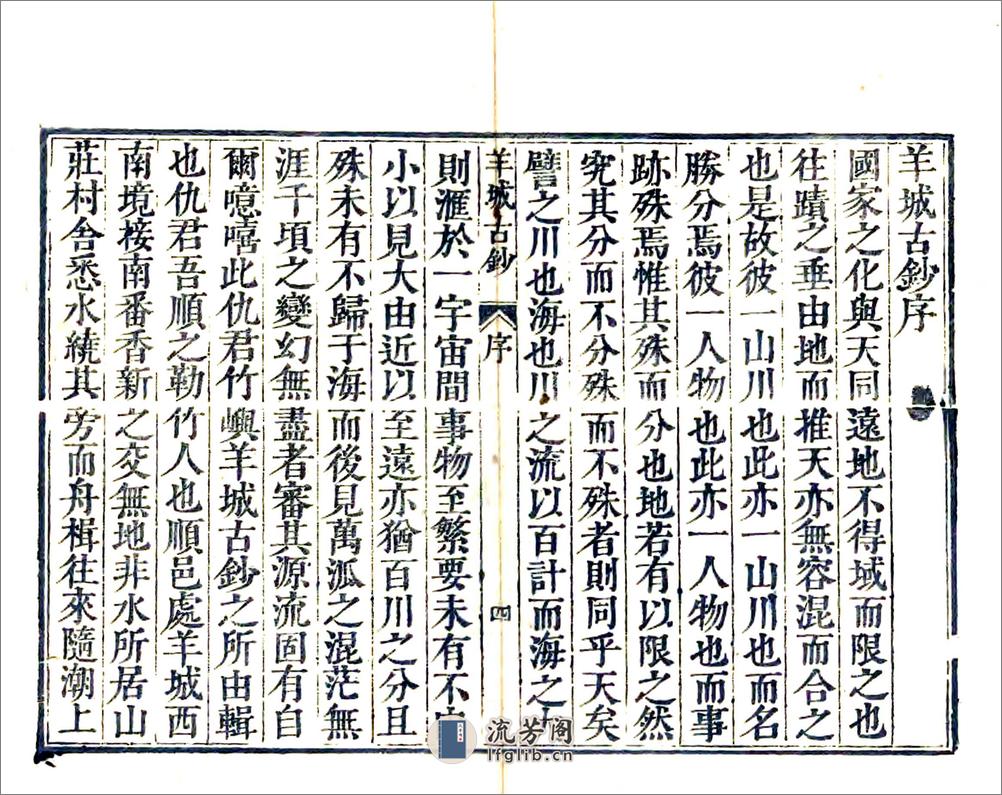 羊城古鈔序
國家之化與天同遠地不得域而限之也
往蹟之垂由地而推天亦無容混而合之
也是故彼一山川也此亦一山川也而名
勝分焉彼一人物也此亦一人物也而事
跡殊焉惟其殊而分也地若有以限之然
究其分而不分殊而不殊者則同乎天矣
譬之川也海也川之流以百計而海之
羊城古鈔
序
四
則滙於一宇宙間事物至繁要未有不
小以見大由近以至遠亦猶百川之分且
殊未有不歸于海而後見萬派之混茫無
涯千頃之變幻無盡者審其源流固有自
爾噫嘻此仇君竹嶼羊城古鈔之所由輯
也仇君吾順之勒竹人也順邑處羊城西
南境接南番香新之交無地非水所居山
莊村舍悉水繞其旁而舟楫往來隨潮上
流芳阁
lfglib.cn